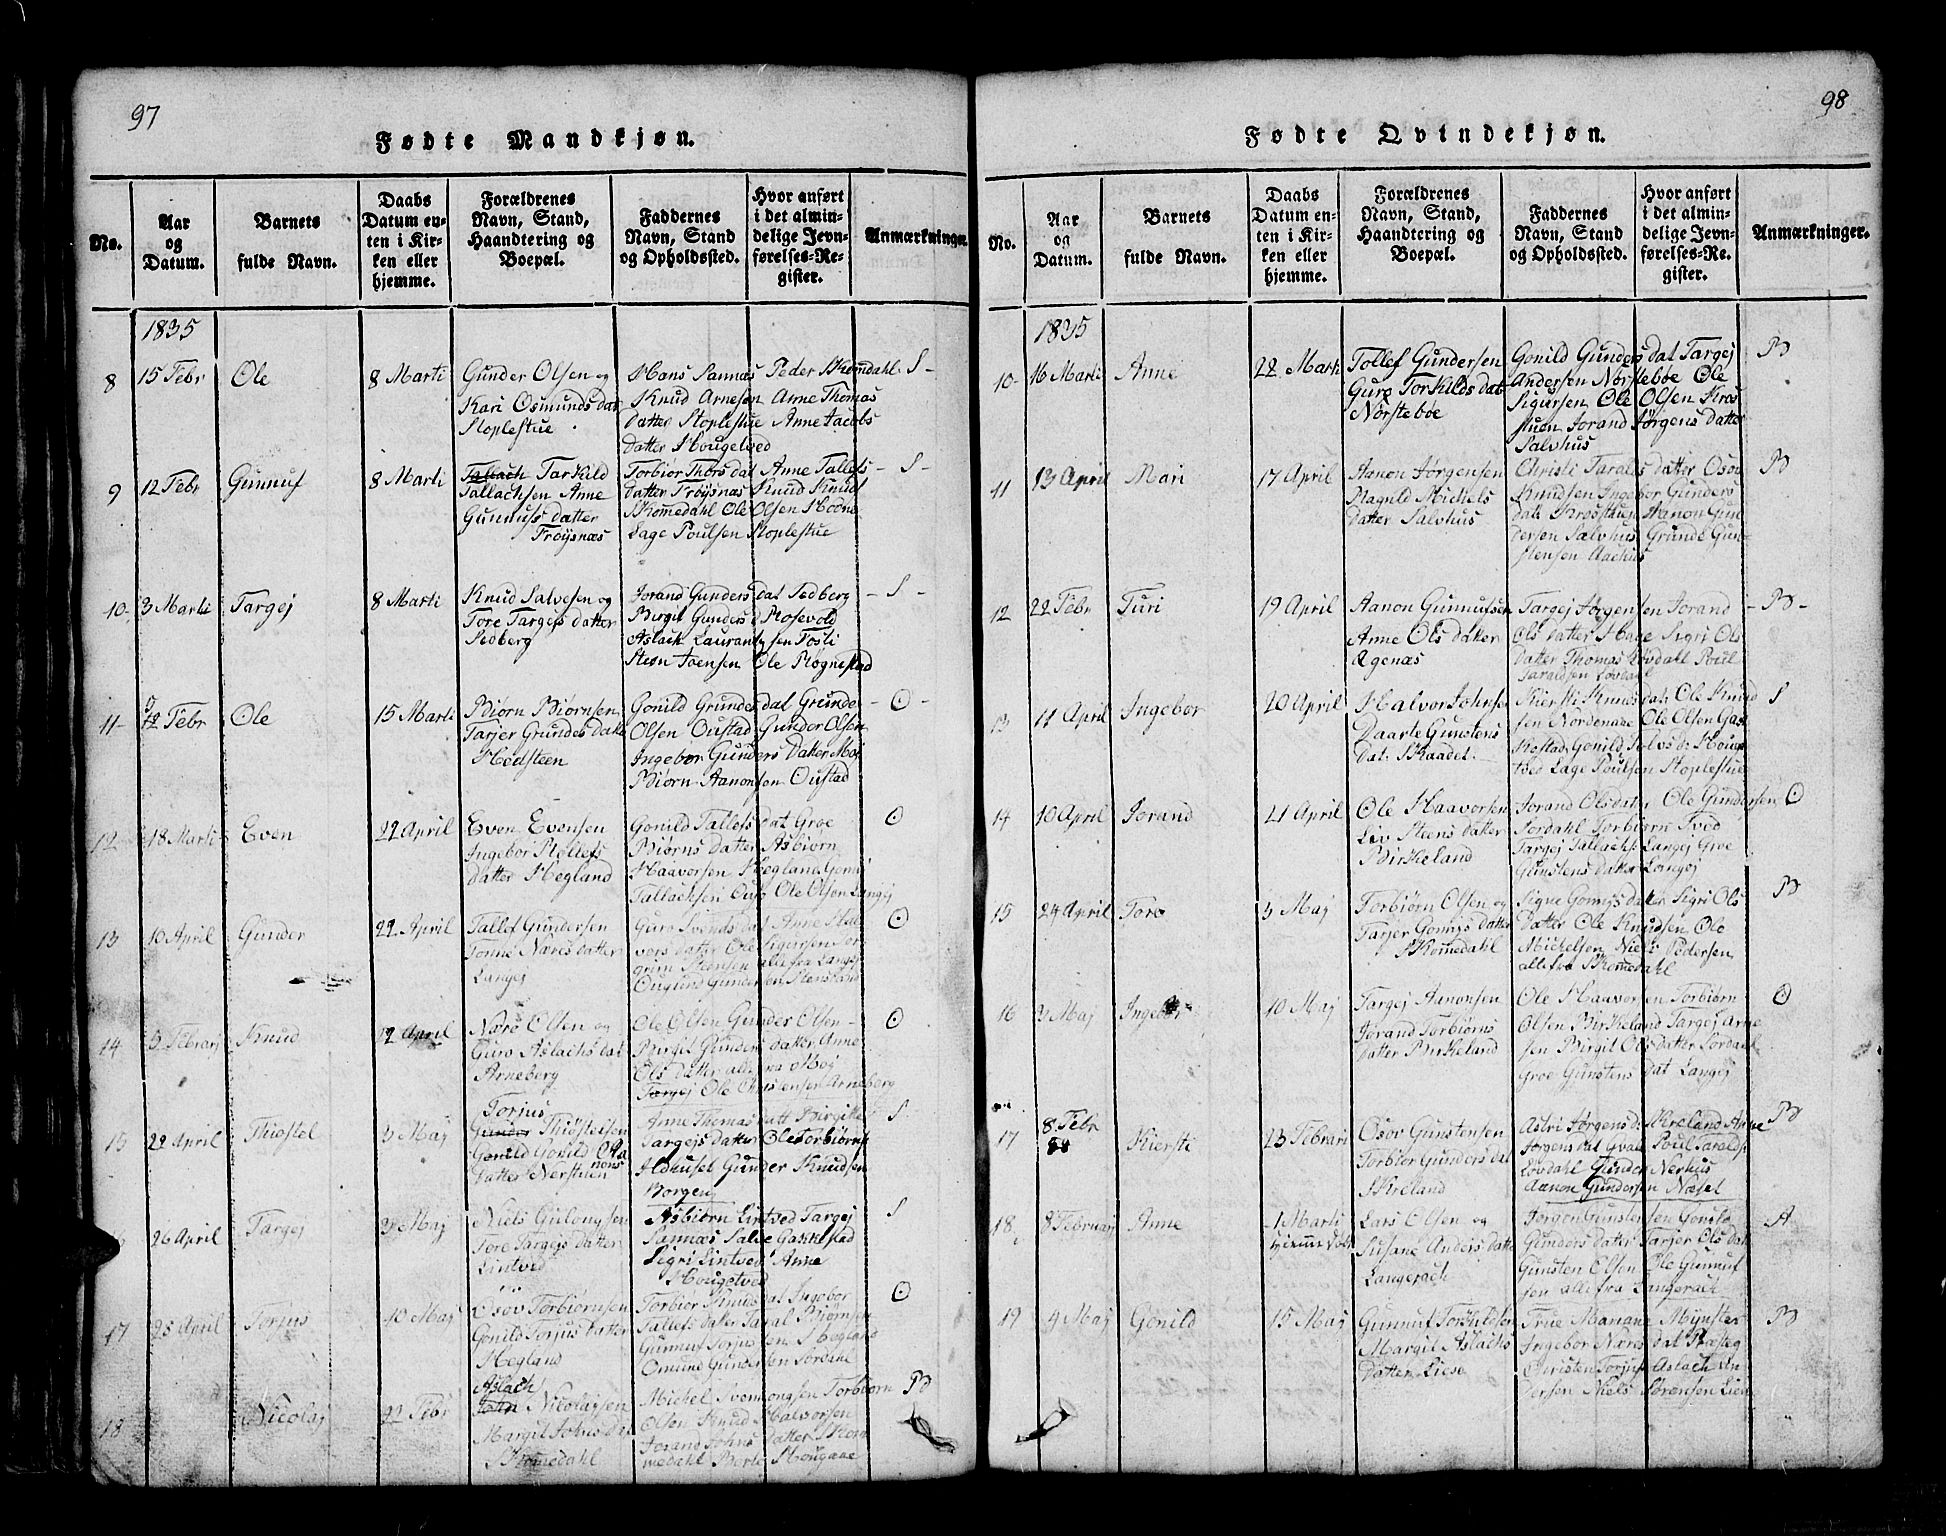 97
Fødte Mandkjøn.
No.
Aar
og
Datum.
Barnets
fulde Navn.
Daabs
Datum en-
ten i Kir-
ken eller
hjemme.
Forældrenes
Navn, Stand,
Haandtering og
Boepæl.
Faddernes
Navn, Stand
og Opholdssted.
Hvor anført
i det almin-
delige Jevn-
førelses-Re-
gister.
Anmærkninger.
1835
8
15 Febr
Ole
8 Marti
Gunder Olsen og
Kari Osmunds dat
Stoplestue
Hans Sannæs Peder Skomdahl
Knud Arnesen Anne Thomas
datter Stoplestue Anne Jacobs
datter Hougetved
S -
9
12 Febr
Gunnuf
8 Marti
Tarkild
Tallachsen Anne
Gunnufs datter
Frøysnæs
Torbior Thors dat Anne Tallefs
datter Frøysnæs Knud Knud
Skomedahl Ole Olsen
Lage Poulsen Stoplestue
- S -
10-
3 Marti
Targej
8 Marti
Knud Salvesen og
Tore Targejs datter
Sedberg
Jorand Gunders dat Sedberg
Birgit Gunders d Rosevold
Aslach
Sten Joensen Ole Røgnestad
- S -
11-
12 Febr
Ole
15 Marti
Biørn Biørnsen
Tarjer Grundes datt
Gonild Grundes dat Grunde
Olsen Oustad Gunder Olsen
Ingebor Gunders datter
Biørn Aanonsen Oustad
- ʘ -
12
18 Marti
Even
22 April
Even Evensen
Ingebor Rollefs
datter Hegland
Gonild Tallefs dat Groe
Biørns datter Asbiørn
Haavorsen Hegland
Tallachsen Ole Olsen Langej
ʘ
13
10 April
Gunder
22 April
Tallef Gundersen
Tonne Næres datter
Langej
Guro Svends dat Anne Hal
vors datter Ole Sigursen Tor
grim Stensen alle fra Langej
Gundersen
ʘ
14
5 Februarj
Knud
12 April
Næro Olsen og
Guro Aslachs dat
Arneberg
Ole Olsen Gunder Olsen
Birgit Gunders datter Anne
Ols datter alle fra
Targej Ole Christensen Arneberg
ʘ
15
22 April
Thiostel
3 Maj
Torjus
Thiostelsen
Gonild
datter Nerstuen
Anne Thomas datt Birgitte
Targejs datter Ole Torbiørns
Gunder Knudsen
Borgen
S
26 April
Targej
3 Maj
Niels
Tore Targejs datter
Lintved
Asbiørn Lintved Targej
Sannæs Salve
Sigri Lintved Anne
Hougetved
S
17
25 April
Torjus
10 Maj
Osov Torbiørnsen
Gonild Torjus datter
Hegland
Torbior Knuds dat Ingebor
Tallefs datter Taral Biørnsen
Gunnuf Torjus sen Hegland
Omund Gundersen
ʘ
18
Nicolaj
22 Febr
Aslach
Nicolajsen
Margit Johns dat
Skomedahl
Michel Torbiørn
Olsen Knud Halvorsen
Jorand Johns datter Skom
medahl
B
98
Fødte Qvindekjøn.
No.
Aar
og
Datum.
Barnets
fulde Navn.
Daabs
Datum en-
ten i Kir-
ken eller
hjemme.
Forældrenes
Navn, Stand,
Haandtering og
Boepæl.
Faddernes
Navn, Stand
og Opholdssted.
Hvor anført
i det almin-
delige Jevn-
førelses-Re-
gister.
Anmærkninger.
1835
10-
16 Marti
Anne
22 Marti
Tollef Gundersen
Guro Torkilds dat
Nørstebøe
Gonild Gunders dat Targej
Andersen Nørstebøe Ole
Sigursen Ole Olsen
stuen Jorand Jørgens datter
Salvhus
B
11
13 April
Mari
17 April
Aanon Jørgensen
Ragnild Mickels
datter Salvhus
Christi Tarals datter Osov
Knudsen Ingebor Gunders
datt Aanon Gun
dersen Salvhus Grunde Gun
stensen
B
12
22 Febr
Turi
19 April
Aanon Gunnufsen
Anne Ols datter
Targej Jørgensen Jorand
Ols datter Hage Sigri Ols
datter Thomas Løvdahl Poul
Taraldsen Løvdahl
- B -
13
11 April
Ingebor
20 April
Halvor Johnse
Daarte Gunstens
dat. Skaadel.
Kiersti Knuds dat. Ole Knud
sen Nordenade Ole Olsen
tved Lage Poulsen Stoplestue
S
14
10 April
Jorand
21 April
Ole Haavorsen
Liv Stens datter
Birkeland
Jorand Olsdater Ole Gundersen
Torbiørn Tved
Targej Tallachs. Langej Groe
Gunstens datter Langej
ʘ
15
24 April
Tore
3 Maj
Torbiørn Olsen og
Tarjer datter
Skomedahl
Signe datter Sigri Ols
datter Ole Knudsen Ole
Michelsen Niels Pedersen
alle fra Skomedahl
B
16
3 Maj
Ingebor
10 Maj
Targej Aanonsen
Jorand Torbiørns
datter Birkeland
Ole Haavorsen Torbiørn
Olsen Birkeland Targej Arne
sen Birgit Ols datter
Groe Gunstens dat Langej
ʘ
17
8 Febr
Kiersti
23 Februari
Osov Gunstensen
Torbior Gunders dat
Skreland
Astri Jørgens d. Skreland Anne
Jørgens dat Poul Taralds
Løvdahl Gunder Nerhus
Aanon Gundersen Næset
B
18
8 Februarj
Anne
1 Marti
Lars Olsen og
Susane Anders datte
Langerach
Jørgen Gunstensen Gonild
Gunders datter Tarjer Ols dat
Gunsten Olsen Ole Gunnuf
sen alle fra Langerach
A
19
4 Maj
Gonild
15 Maj
Gunnuf Torkildsen
Margit Aslachs
datter Liese
Frue Mariane Mynster
Ingebor Næres dat
Christen Torjus Aslach An
dersen Niels Sørensen
B